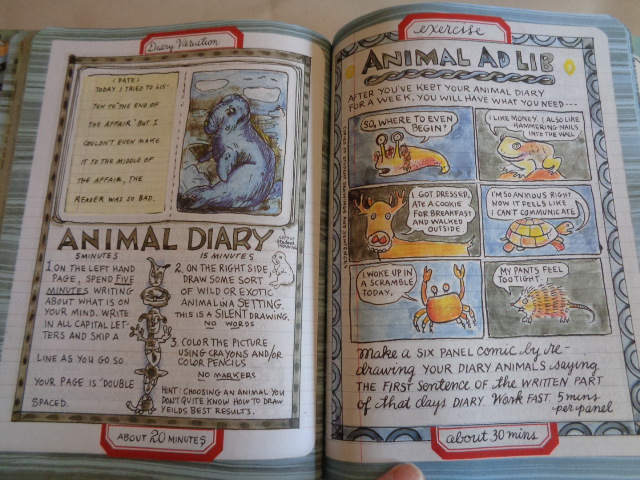 Diary Variation
(DATE)
TODAY I TRIED TO LIS-
TEN TO "THE END OF
THE AFFAIR" BUT I
COULDN'T EVEN MAKE
IT TO THE MIDDLE OF
THE AFFAIR, THE
READER WAS SO BAD.
ANIMAL DIARY
5 MINUTES
1. ON THE LEFT HAND
PAGE, SPEND FIVE
MINUTES WRITING
ABOUT WHAT IS ON
YOUR MIND. WRITE
IN ALL CAPITAL LET-
TERS AND SKIP A
LINE AS YOU GO SO
YOUR PAGE IS "DOUBLE
SPACED.
15 MINUTES
2. ON THE RIGHT SIDE,
DRAW SOME SORT
OF WILD OR EXOTIC
ANIMAL IN A SETTING.
THIS IS A SILENT DRAWING.
NO WORDS
3. COLOR THE PICTURE
USING CRAYONS AND/OR
COLOR PENCILS
NO MARKERS
HINT: CHOOSING AN ANIMAL YOU
DON'T QUITE KNOW HOW TO DRAW
YEILDS BEST RESULTS.
ABOUT 20 MINUTES
exercise
ANIMAL AD LIB
AFTER YOU'VE KEPT YOUR ANIMAL DIARY
FOR A WEEK, YOU WILL HAVE WHAT YOU NEED---
SO, WHERE TO EVEN
BEGIN?
I LIKE MONEY. I ALSO LIKE
HAMMERING NAILS
INTO THE WALL
I GOT DRESSED,
ATE A COOKIE
FOR BREAKFAST
AND WALKED
OUTSIDE
I'M SO ANXIOUS RIGHT
NOW IT FEELS LIKE
I CAN'T COMMUNICATE
I WOKE UP IN
A SCRAMBLE
TODAY.
MY PANTS FEEL
TOO TIGHT.
Make a SIX PANEL comic by re-
drawing YOUR DIARY ANIMALS saying
THE FIRST SENTENCE of the WRITTEN PART
of that days DIARY. Work FAST. 5 mins
-per-panel
about 30 mins